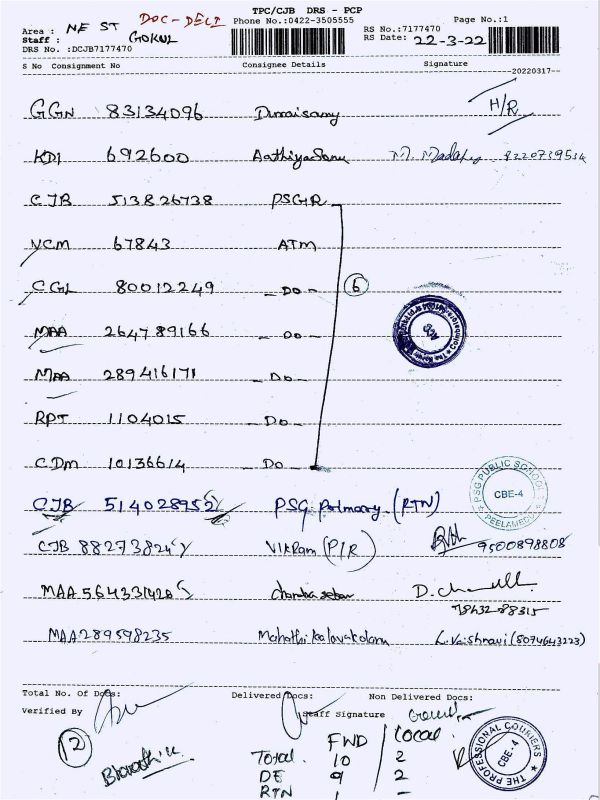 TPC/CJB DRS - PCP
DOC-DELI
Phone No.:0422-3505555
Page No.:1
Area : NE ST
Staff : GOKUL
DRS No. :DCJB7177470
RS No.:7177470
RS Date: 22-3-22
S No Consignment No Consignee Details Signature
20220317
GGN 83134096 Duraisamy H/R
KDI 692600 8220739534
CJB 513826738 PSGR
VCM 67843 ATM
CGL 80012249 -Do- 6
MAA 264789166 -Do-
MAA 289416171 -Do-
RPT 1104015 -Do-
CDM 10136614 -Do-
PSG PUBLIC SCHOOLS
CBE-4
PEELAMEDU
CJB 514028952 PSG Primary (RTN)
CJB 88273824 VIKRam (P/R) 9500898808
MAA D.
78432 88315
MAA289598235 L. Vaishnavi (8074643223)
Total No. Of Docs: Delivered Docs: Non Delivered Docs:
Verified By Staff Signature
12
Bharathi
FWD Local
Total 10 2
DE 9 2
RTN 1 -
THE PROFESSIONAL COURIERS
CBE-4